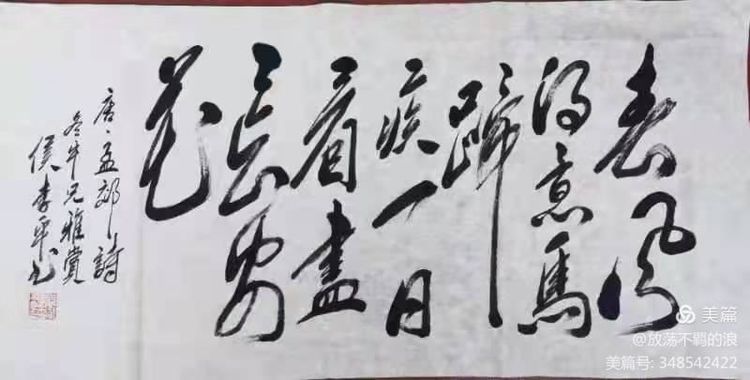 春风
得意馬
蹄
疾一日
看盡
长安
花
唐·孟郊詩
冬牛兄雅赏
侯李平书
美篇
@放荡不羁的浪
美篇号: 348542422